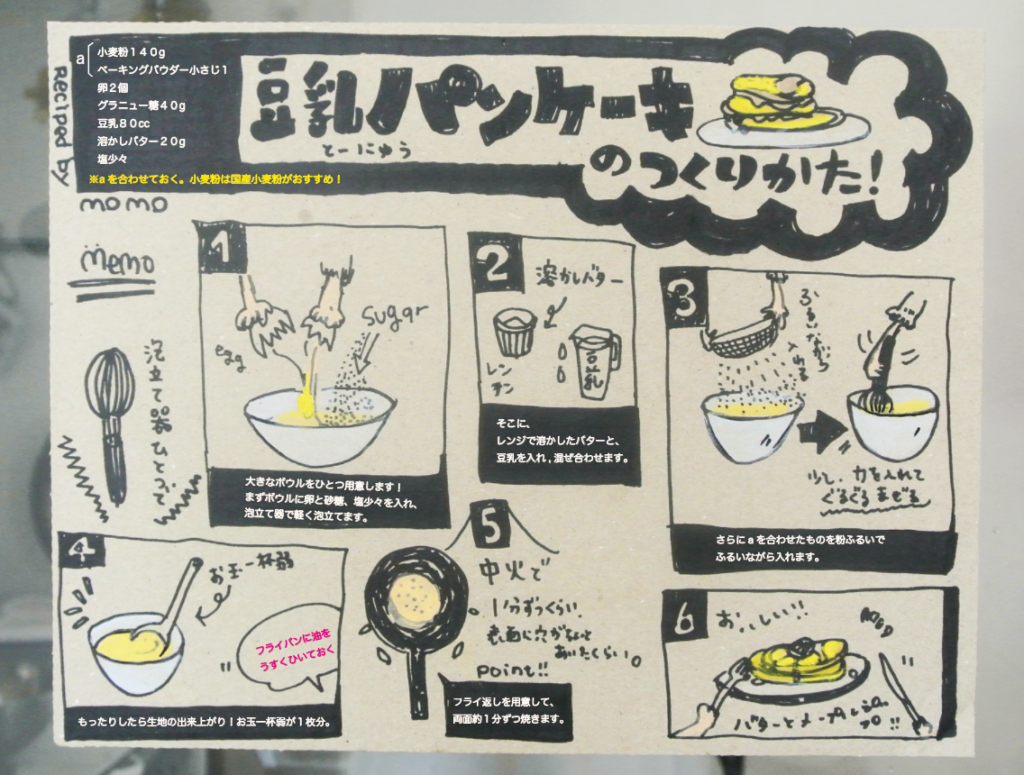 a
小麦粉140g
ベーキングパウダー小さじ1
卵2個
グラニュー糖40g
豆乳80cc
溶かしバター20g
塩少々
※aを合わせておく。小麦粉は国産小麦粉がおすすめ！
Reciped by
momo
豆乳パンケーキ
とーにゅう
のつくりかた！
memo
泡立て器ひとつで
1
egg
sugar
大きなボウルをひとつ用意します！
まずボウルに卵と砂糖、塩少々を入れ、
泡立て器で軽く泡立てます。
2
溶かしバター
レン
チン
豆乳
そこに、
レンジで溶かしたバターと、
豆乳を入れ，混ぜ合わせます。
3
ふるいながら
入れる
少し、力を入れて
ぐるぐるまぜる
さらにaを合わせたものを粉ふるいで
ふるいながら入れます。
4
お玉一杯弱
フライパンに油を
うすくひいておく
もったりしたら生地の出来上がり！お玉一杯弱が1枚分。
5
中火で
1分ずつくらい。
表面に穴がちょっと
あいたくらい。
point!!
フライ返しを用意して、
両面約1分ずつ焼きます。
6
おいしい!!
バターとメープルシロップ!!